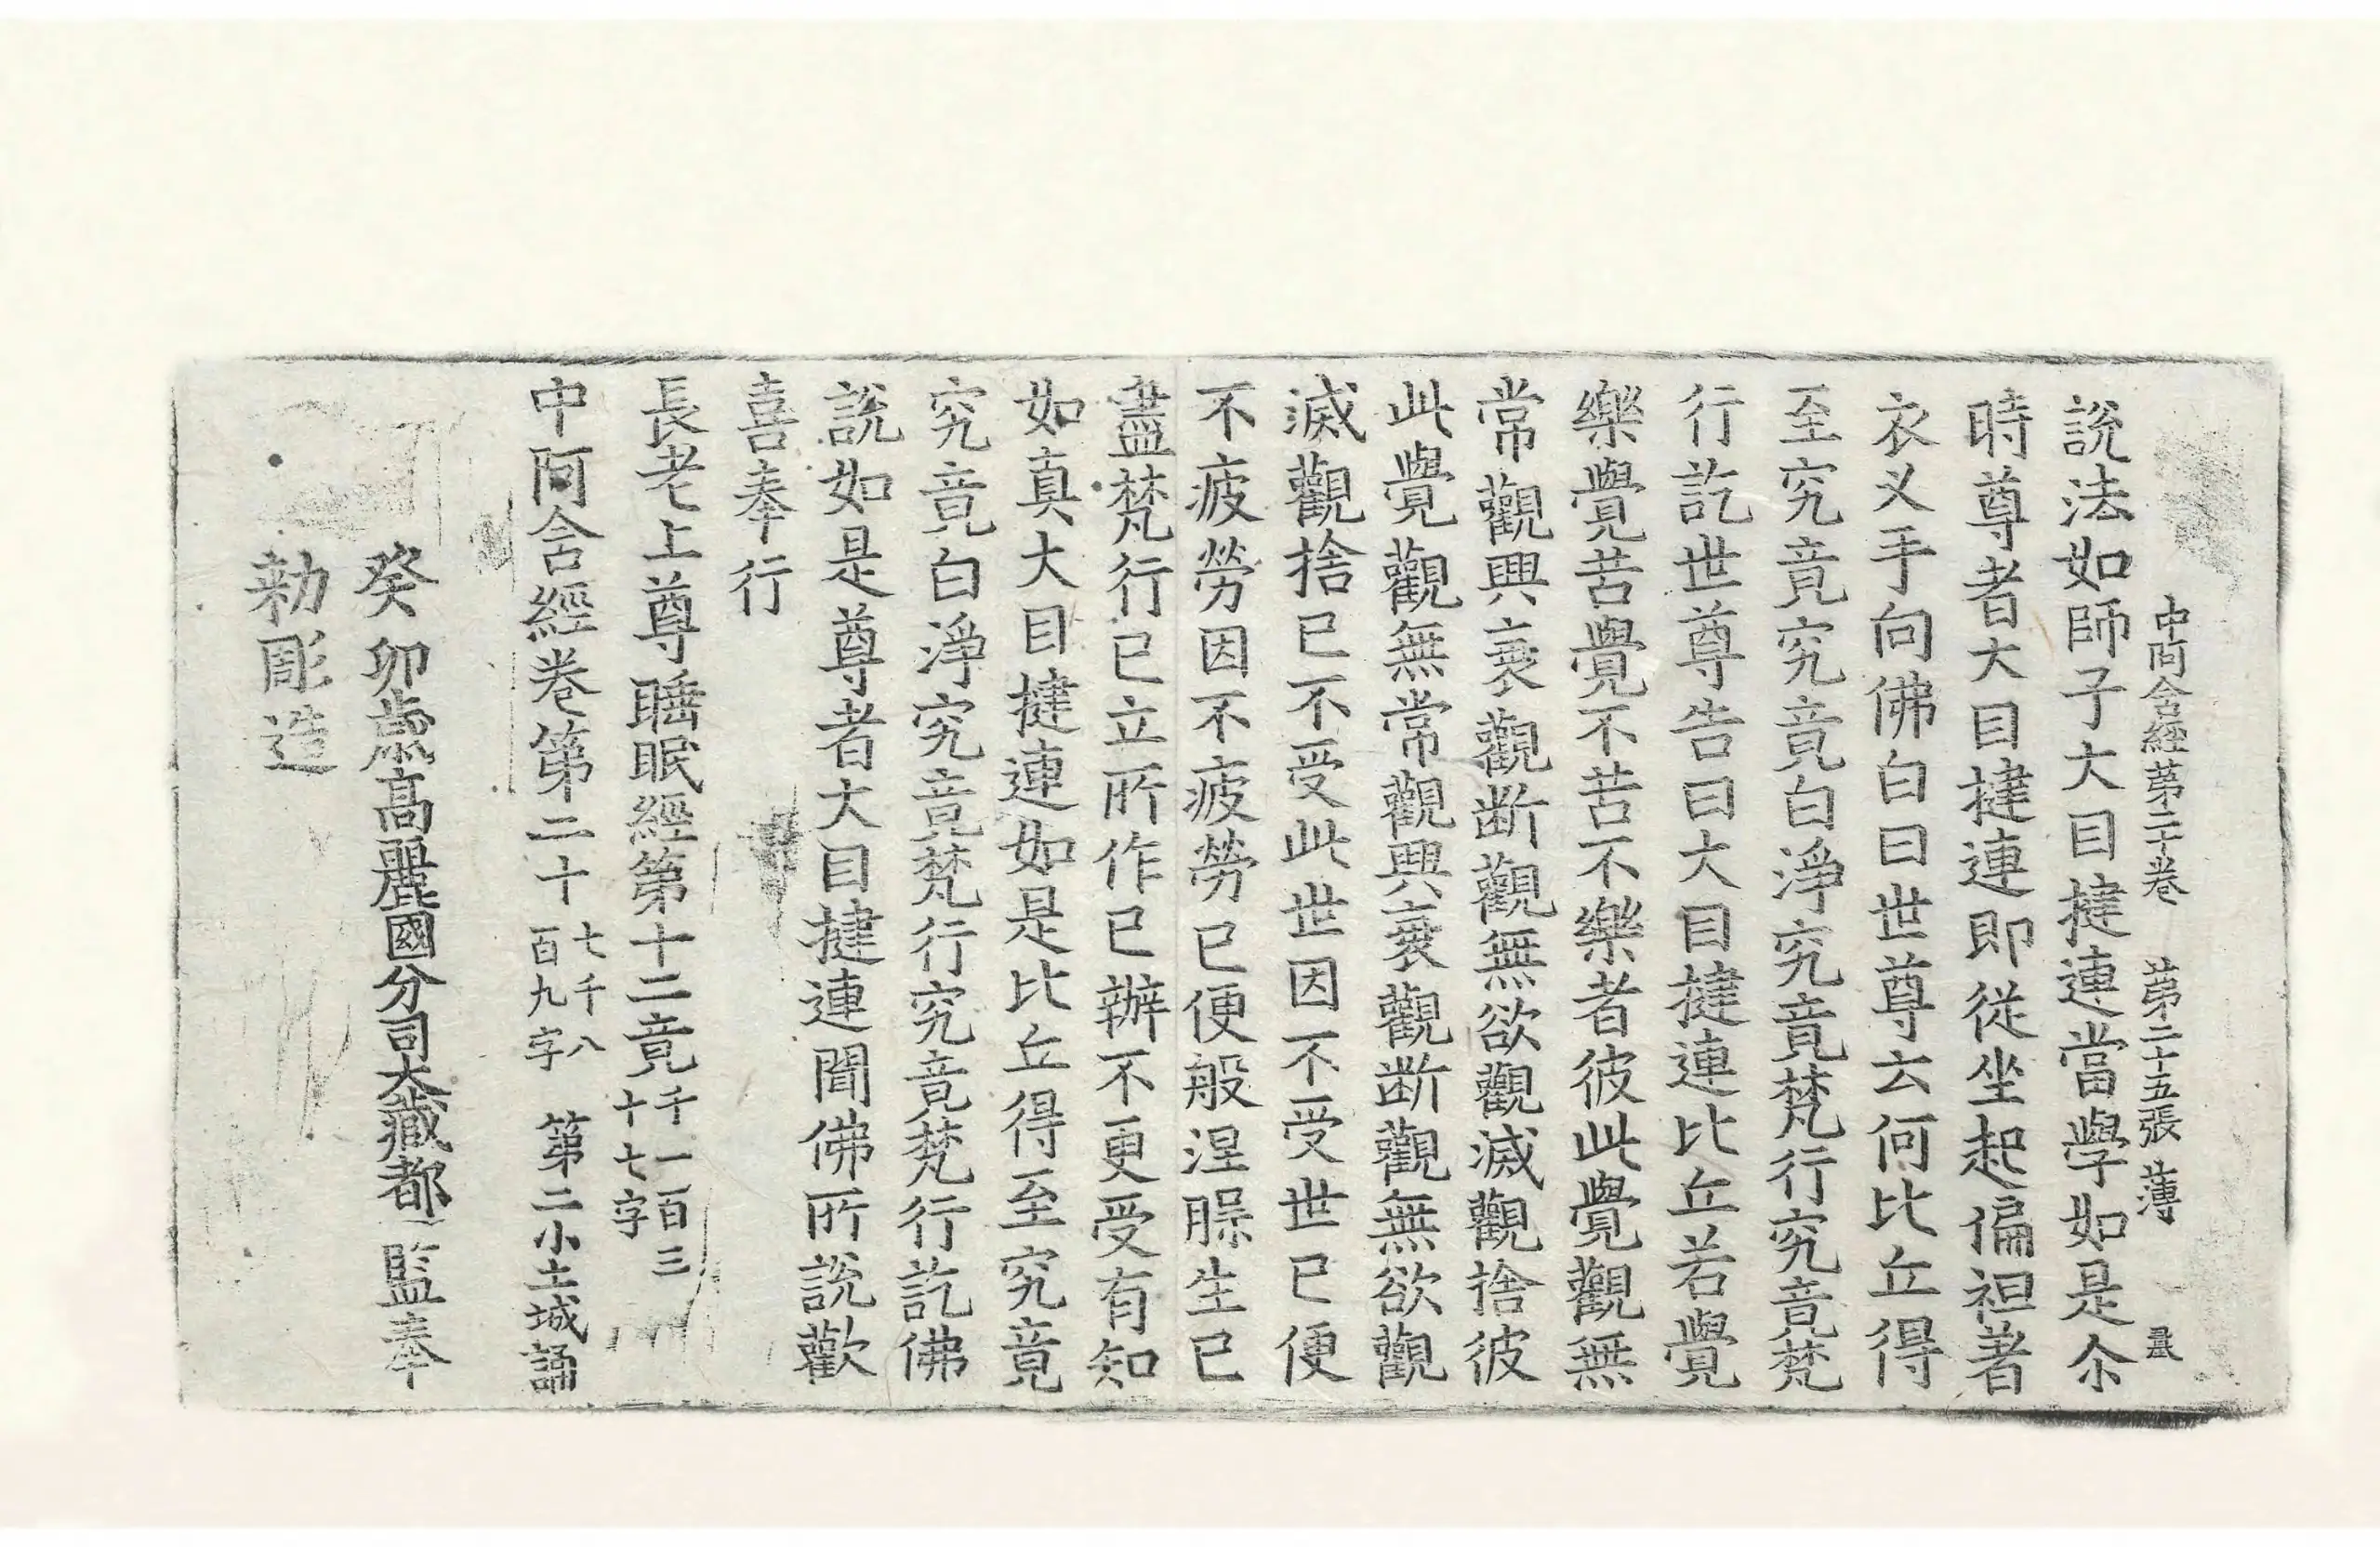 中阿含經第二十卷　第二十五張　薄
說法如師子大目揵連當學如是尒
時尊者大目揵連即從坐起偏袒著
衣叉手向佛白曰世尊云何比丘得
至究竟究竟白淨究竟梵行究竟梵
行訖世尊告曰大目揵連比丘若覺
樂覺苦覺不苦不樂者彼此覺觀無
常觀興衰觀断觀無欲觀滅觀捨彼
此覺觀無常觀興衰觀断觀無欲觀
滅觀捨已不受此世因不受世已便
不疲勞因不疲勞已便般涅槃生已
盡梵行已立所作已辦不更受有知
如真大目揵連如是比丘得至究竟
究竟白淨究竟梵行究竟梵行訖佛
說如是尊者大目揵連聞佛所說歡
喜奉行
長老上尊睡眠經第十二竟千一百三十七字
中阿含經卷第二十七千八百九字　第二小土城誦
癸卯歲高麗國分司大藏都監奉
勑彫造